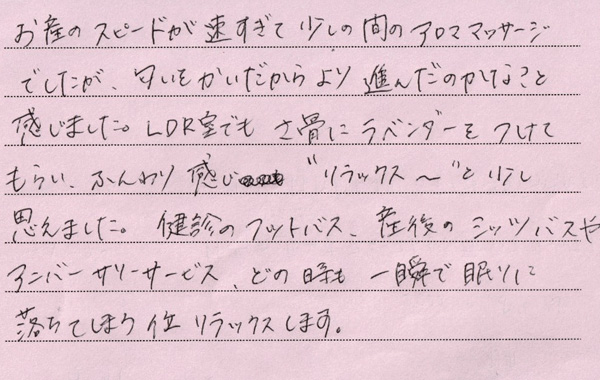 お産のスピードが速すぎて少しの間のアロママッサージ
でしたが、匂いをかいだからより進んだのかなぁと
感じました。LDR室でもさ骨にラベンダーをつけて
もらい、ふんわり感じ "リラックス〜"と少し
思えました。健診のフットバス、産後のシッツバスや
アニバーサリーサービス、どの時も一瞬で眠りに
落ちてしまう位リラックスします。